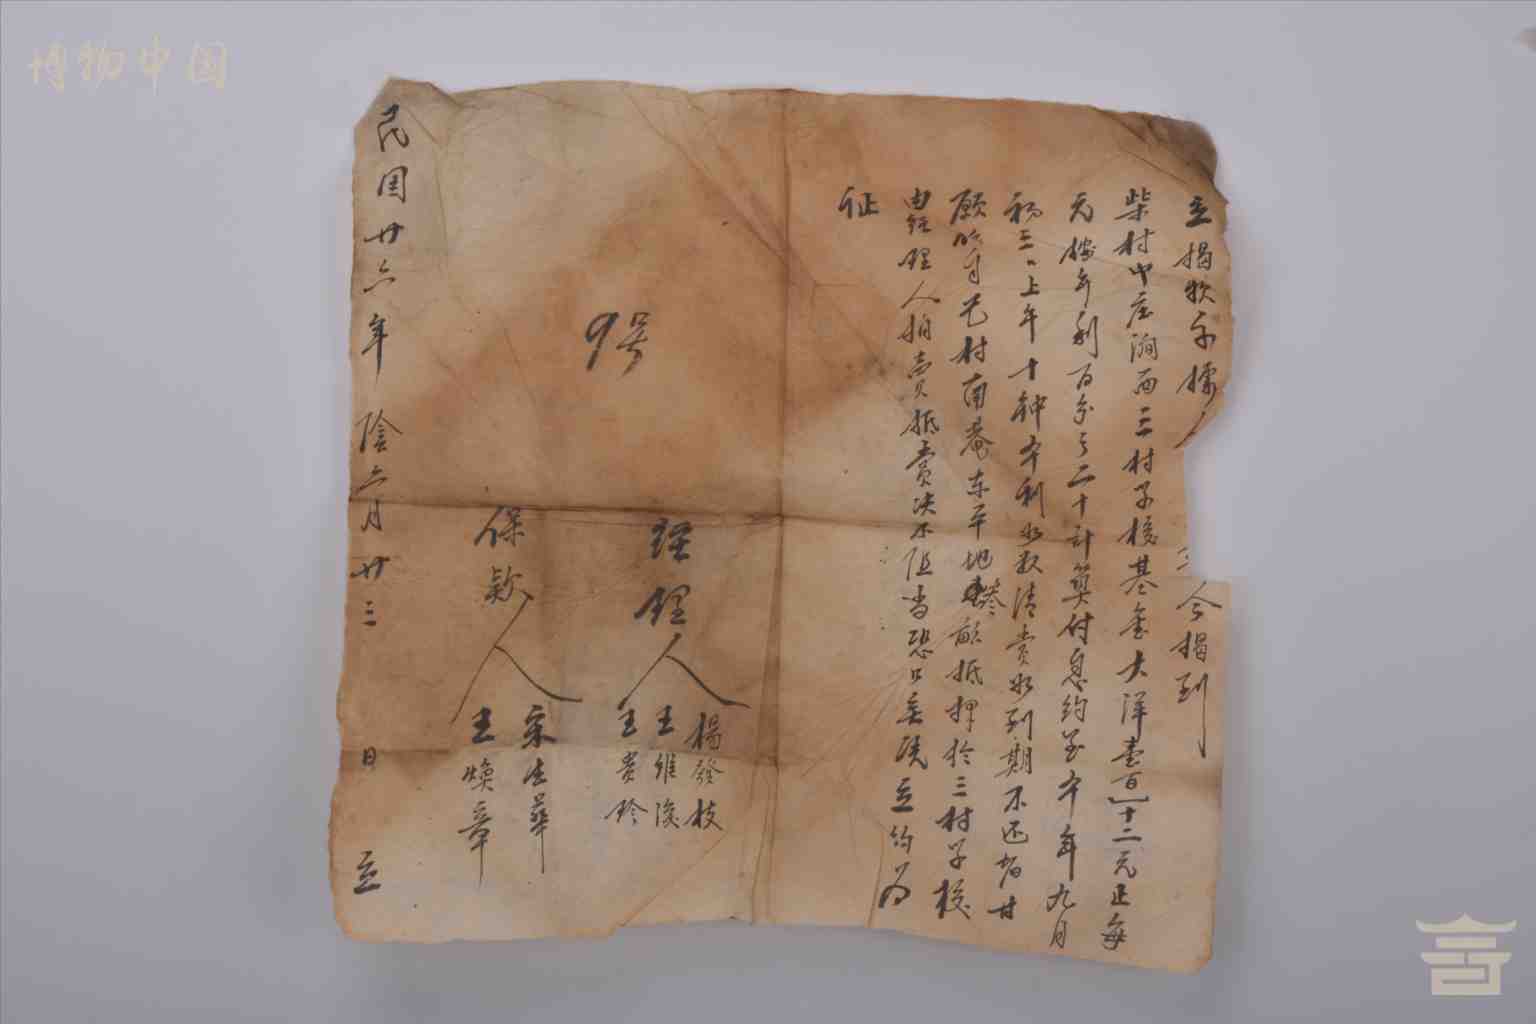 博物中国
立揭欵字據人 今揭到
柴村中庄澗西三村学校基金大洋壹百一十二元正每
元按年利百分之二十計算付息約至本年九月
初三日上午十鈡本利如数清賣如到期不还者甘
愿将自己村南菴东平地叁畝抵押於三村学校
由経理人拍賣抵賣决不阻当恐口無凭立約为
征
9号
経理人
楊發枝
王維俊
王贵珍
保款人
宋生華
王焕章
民国廿六年陰六月廿三日立